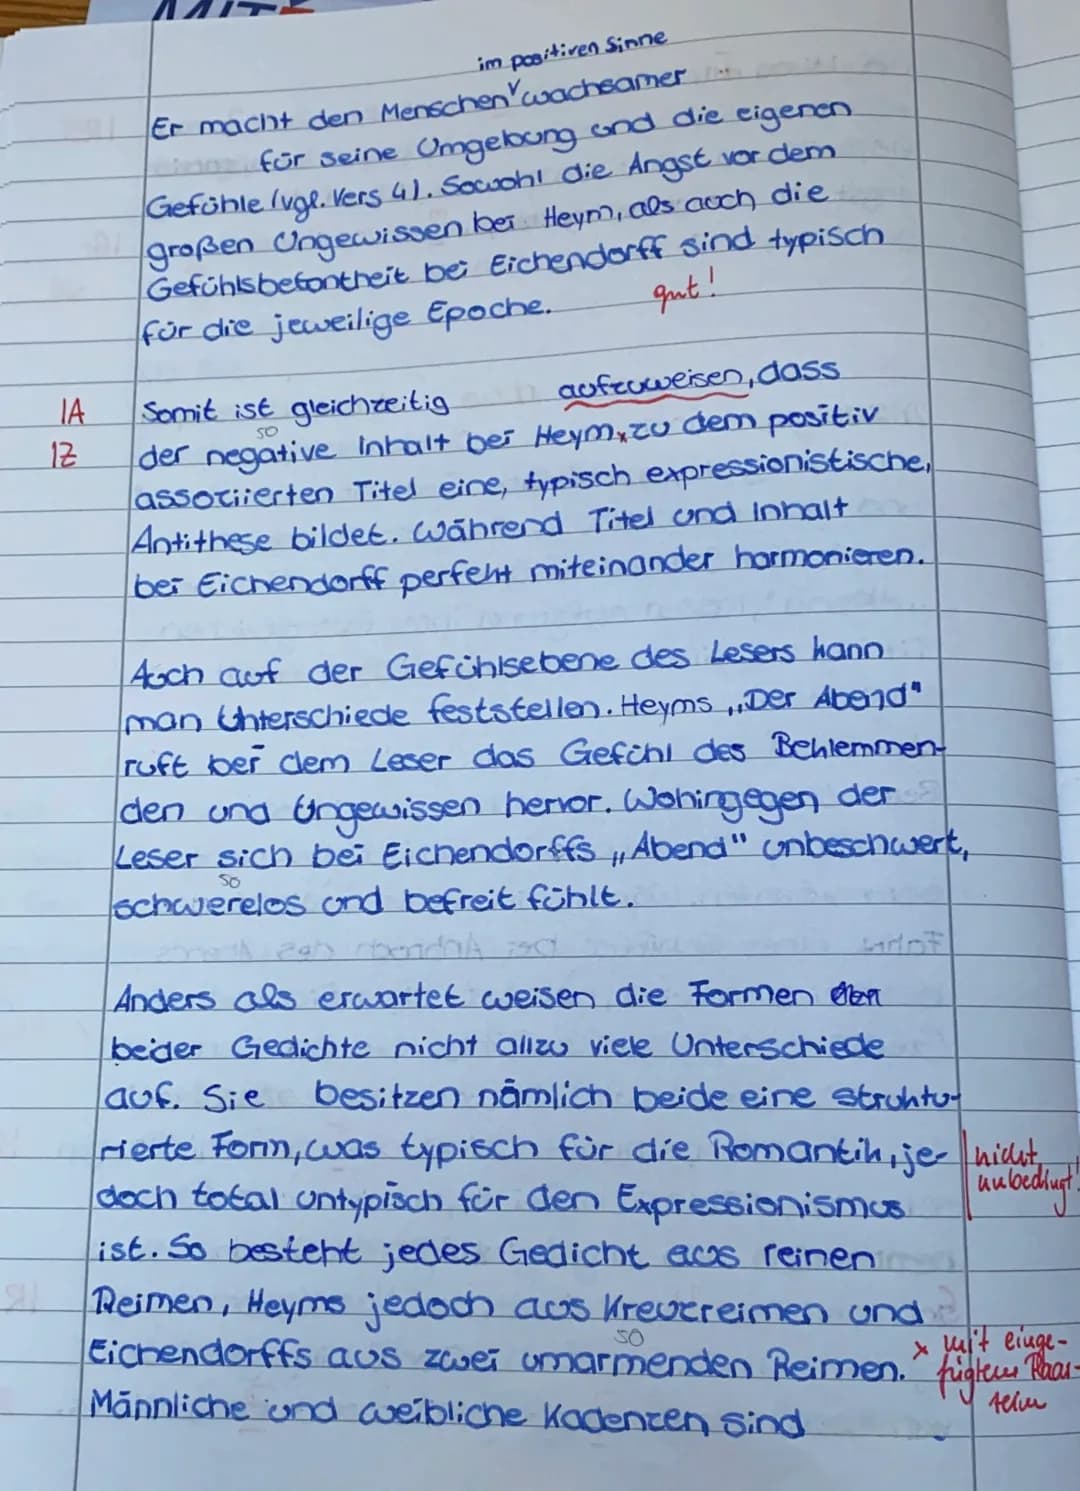 im positiven Sinne
Er macht den Menschen wachsamer
für seine Umgebung und die eigenen
Gefühle (vgl. Vers 4). Sowohl die Angst vor dem
großen Ungewissen bei Heym, als auch die
Gefühlsbetontheit bei Eichendorff sind typisch
für die jeweilige Epoche. gut!
1A Somit ist gleichzeitig aufzuweisen, dass
50
1Z der negative Inhalt bei Heym, zu dem positiv
assoziierten Titel eine, typisch expressionistische,
Antithese bildet. Während Titel und Inhalt
bei Eichendorff perfekt miteinander harmonieren.
Auch auf der Gefühlsebene des Lesers kann
man Unterschiede feststellen. Heyms „Der Abend"
ruft bei dem Leser das Gefühl des Beklemmen-
den und Ungewissen hervor. Wohingegen der
Leser sich bei Eichendorffs „Abend" unbeschwert,
50
schwerelos und befreit fühlt.
Anders als erwartet weisen die Formen
beider Gedichte nicht allzu viele Unterschiede
auf. Sie besitzen nämlich beide eine struktu-
rierte Form, was typisch für die Romantik, je- nicht
doch total untypisch für den Expressionismus unbedingt!
ist. So besteht jedes Gedicht aus reinen
Reimen, Heyms jedoch aus Kreuzreimen und
50
Eichendorffs aus zwei umarmenden Reimen. x mit einge-
fügtem Paar-
reim
Männliche und weibliche Kadenzen sind